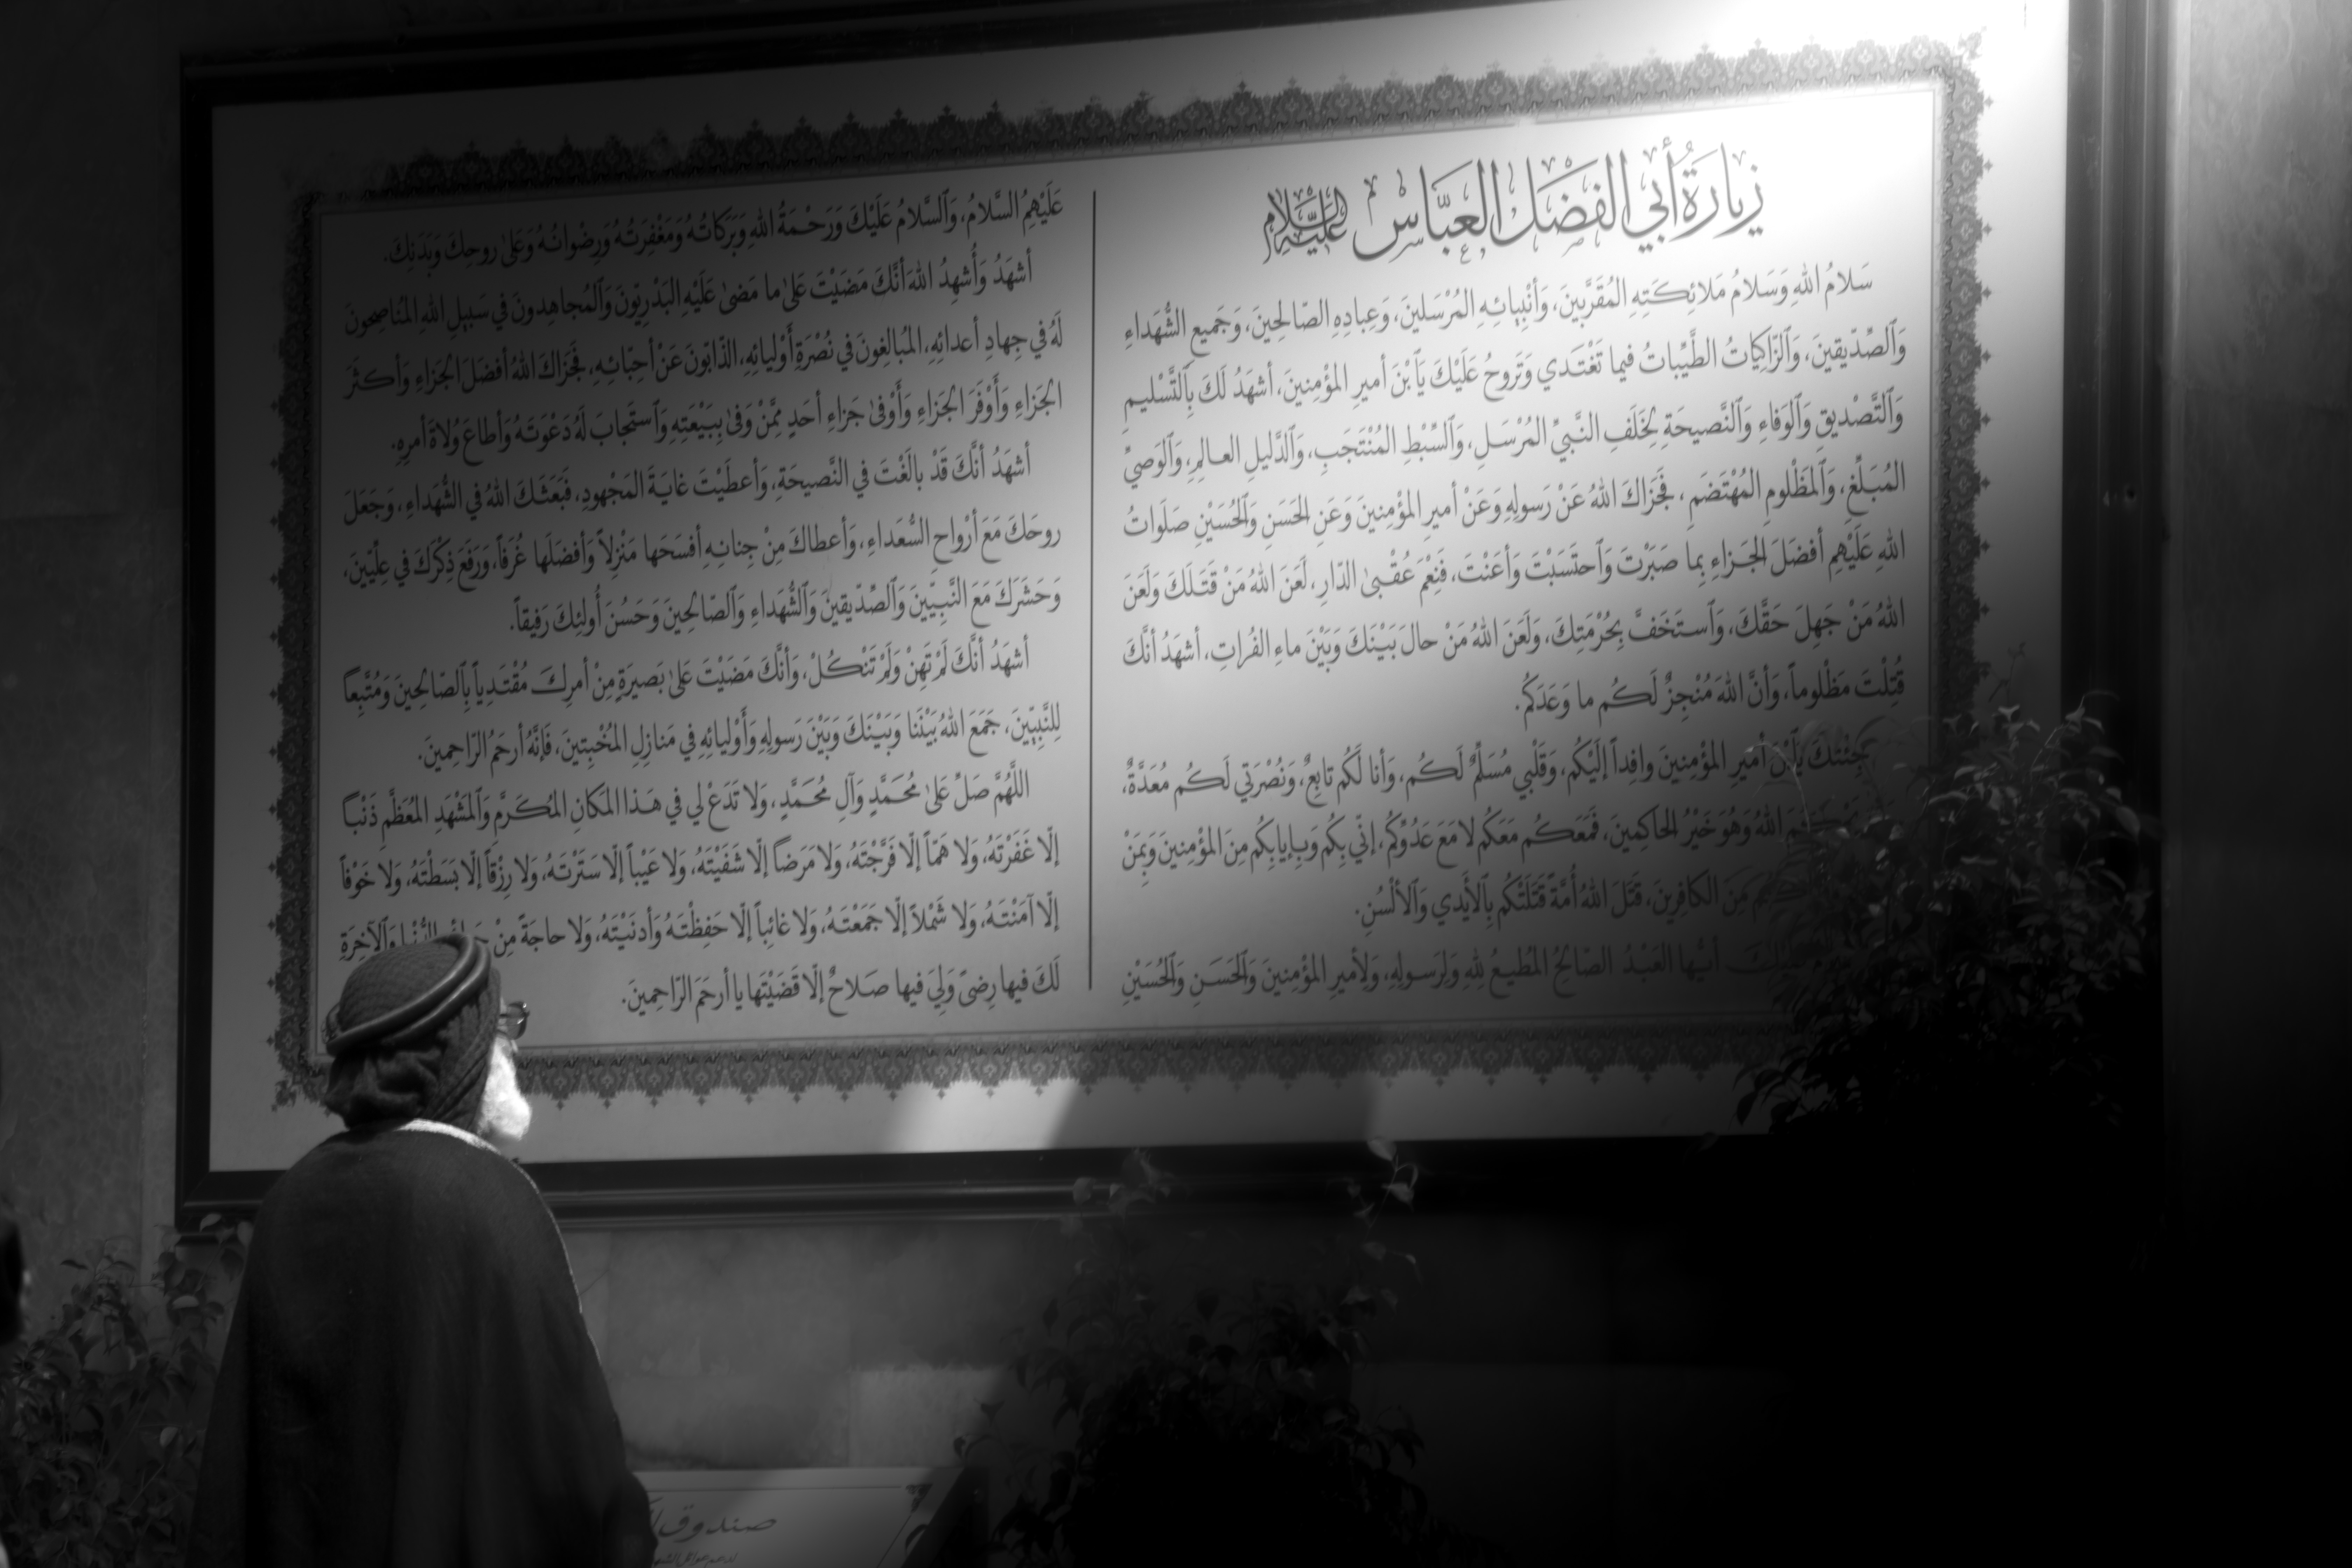 زِيَارَةُ أَبِي الفَضْلِ العَبَّاسِ عَلَيْهِ السَّلَامُ
سَلامُ اللهِ وَسَلامُ مَلائِكَتِهِ المُقَرَّبينَ، وَأنْبِيائِهِ المُرْسَلينَ، وَعِبادِهِ الصّالِحينَ، وَجَميعِ الشُّهَداءِ
وَٱلصِّدّيقينَ، وَٱلزّاكِياتُ الطَّيِّباتُ فيما تَغْتَدي وَتَروحُ عَلَيْكَ يَاْبْنَ أميرِ المؤْمِنينَ، أشهَدُ لَكَ بِٱلتَّسْليمِ
وَٱلتَّصْديقِ وَٱلوَفاءِ وَٱلنَّصيحَةِ لِخَلَفِ النَّبيِّ المُرْسَلِ، وَٱلسِّبْطِ المُنْتَجَبِ، وَٱلدَّليلِ العالِمِ، وَٱلوَصِيِّ
المُبَلِّغِ، وَٱلمَظْلومِ المُهْتَضَمِ، فَجَزاكَ اللهُ عَنْ رَسولِهِ وَعَنْ أميرِ المؤْمِنينَ وَعَنِ الحَسَنِ وَٱلحُسَيْنِ صَلَواتُ
اللهِ عَلَيْهِم أفضَلَ الجَزاءِ بِما صَبَرْتَ وَٱحتَسَبْتَ وَأعَنْتَ، فَنِعْمَ عُقْبىٰ الدّارِ، لَعَنَ اللهُ مَنْ قَتَلَكَ وَلَعَنَ
اللهُ مَنْ جَهِلَ حَقَّكَ، وَٱستَخَفَّ بِحُرْمَتِكَ، وَلَعَنَ اللهُ مَنْ حالَ بَيْنَكَ وَبَيْنَ ماءِ الفُراتِ، أشهَدُ أنَّكَ
قُتِلْتَ مَظْلوماً، وَأنَّ اللهَ مُنْجِزٌ لَكُم ما وَعَدَكُم.
جِئْتُكَ يَاْبْنَ أميرِ المؤْمِنينَ وافِداً إلَيْكُم، وَقَلْبي مُسَلِّمٌ لَكُم، وَأنا لَكُم تابِعٌ، وَنُصْرَتي لَكُم مُعَدَّةٌ،
اللهُ وَهُوَ خَيْرُ الحاكِمينَ، فَمَعَكُم مَعَكُم لا مَعَ عَدُوِّكُم، إنّي بِكُم وَبِإيابِكُم مِنَ المؤْمِنينَ وَبِمَنْ
مِنَ الكافِرينَ، قَتَلَ اللهُ أُمَّةً قَتَلَتْكُم بِٱلأَيدي وَٱلألْسُنِ.
أيُّها العَبْدُ الصّالِحُ المُطيعُ للهِ وَلِرَسولِهِ، وَلِأميرِ المؤْمِنينَ وَٱلحَسَنِ وَٱلحُسَيْنِ
عَلَيْهِمُ السَّلامُ، وَٱلسَّلامُ عَلَيْكَ وَرَحْمَةُ اللهِ وَبَرَكاتُهُ وَمَغْفِرَتُهُ وَرِضْوانُهُ وَعَلىٰ روحِكَ وَبَدَنِكَ.
أشهَدُ وَأُشهِدُ اللهَ أنَّكَ مَضَيْتَ عَلىٰ ما مَضىٰ عَلَيْهِ البَدْرِيّونَ وَٱلمُجاهِدونَ في سَبيلِ اللهِ المُناصِحونَ
لَهُ في جِهادِ أعدائِهِ، المُبالِغونَ في نُصْرَةِ أَوْليائِهِ، الذّابّونَ عَنْ أحِبّائِهِ، فَجَزاكَ اللهُ أفضَلَ الجَزاءِ وَأكثَرَ
الجَزاءِ وَأَوْفَرَ الجَزاءِ وَأَوْفىٰ جَزاءِ أحَدٍ مِمَّنْ وَفىٰ بِبَيْعَتِهِ وَٱستَجابَ لَهُ دَعْوَتَهُ وَأطاعَ وُلاةَ أمرِهِ.
أشهَدُ أنَّكَ قَدْ بالَغْتَ في النَّصيحَةِ، وَأعطَيْتَ غايَةَ المَجْهودِ، فَبَعَثَكَ اللهُ في الشُّهَداءِ، وَجَعَلَ
روحَكَ مَعَ أرْواحِ السُّعَداءِ، وَأعطاكَ مِنْ جِنانِهِ أفسَحَها مَنْزِلاً وَأفضَلَها غُرَفاً، وَرَفَعَ ذِكْرَكَ في عِلِّيّينَ،
وَحَشَرَكَ مَعَ النَّبِيّينَ وَٱلصِّدّيقينَ وَٱلشُّهَداءِ وَٱلصّالِحينَ وَحَسُنَ أُولئِكَ رَفيقاً.
أشهَدُ أنَّكَ لَمْ تَهِنْ وَلَمْ تَنْكُلْ، وَأنَّكَ مَضَيْتَ عَلىٰ بَصيرَةٍ مِنْ أمرِكَ مُقْتَدِياً بِٱلصّالِحينَ وَمُتَّبِعاً
لِلنَّبِيّينَ، جَمَعَ اللهُ بَيْنَنا وَبَيْنَكَ وَبَيْنَ رَسولِهِ وَأَوْليائِهِ في مَنازِلِ المُخْبِتينَ، فَإنَّهُ أرحَمُ الرّاحِمينَ.
اللّهُمَّ صَلِّ عَلىٰ مُحَمَّدٍ وَآلِ مُحَمَّدٍ، وَلا تَدَعْ لي في هَذا المَكانِ المُكَرَّمِ وَٱلمَشْهَدِ المُعَظَّمِ ذَنْباً
إلّا غَفَرْتَهُ، وَلا هَمّاً إلّا فَرَّجْتَهُ، وَلا مَرَضاً إلّا شَفَيْتَهُ، وَلا عَيْباً إلّا سَتَرْتَهُ، وَلا رِزْقاً إلّا بَسَطْتَهُ، وَلا خَوْفاً
إلّا آمَنْتَهُ، وَلا شَمْلاً إلّا جَمَعْتَهُ، وَلا غائِباً إلّا حَفِظْتَهُ وَأدنَيْتَهُ، وَلا حاجَةً مِنْ وَٱلآخِرَةِ
لَكَ فيها رِضىً وَلِيَ فيها صَلاحٌ إلّا قَضَيْتَها يا أرحَمَ الرّاحِمينَ.
صندوق